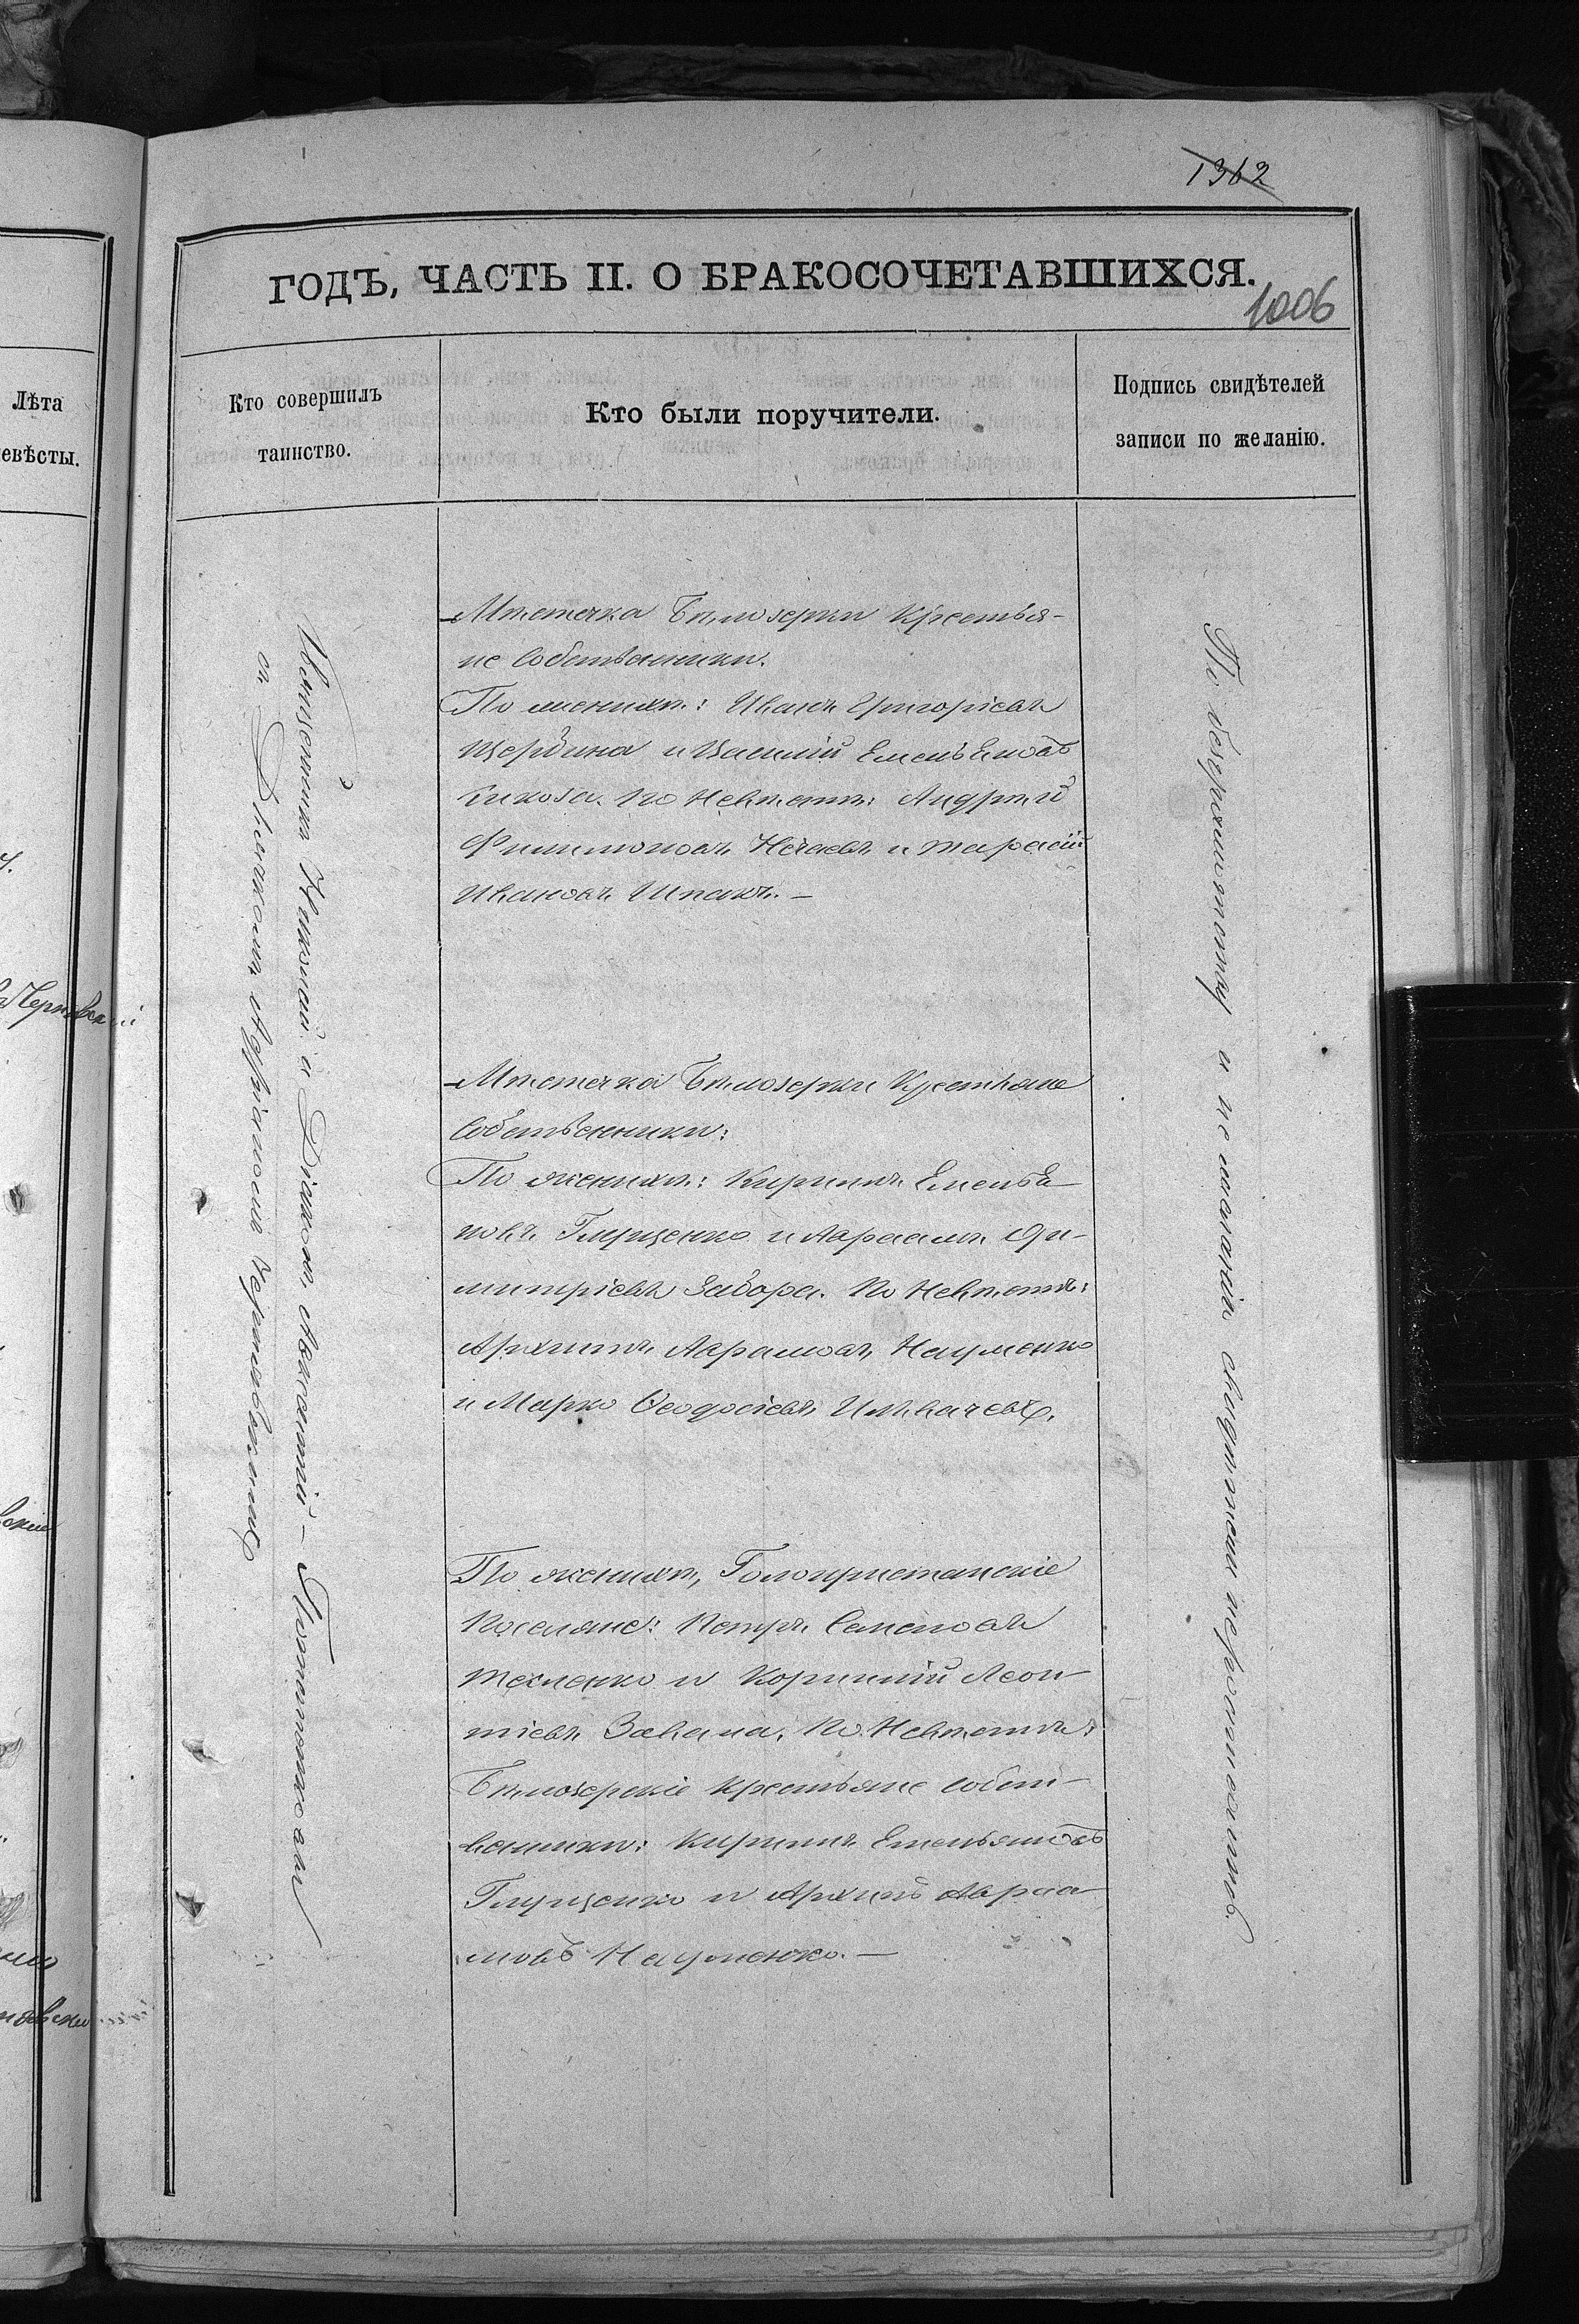 1362
ГОДЪ, ЧАСТЬ II. О БРАКОСОЧЕТАВШИХСЯ.
1006
Лѣта
евѣсты.
Кто совершилъ
таинство.
Кто были поручители.
Подпись свидѣтелей
записи по желанію.
Священникъ Николай и Діаконъ Авксентій
съ Дьячкомъ Адріаномъ Чернявскимъ
Мѣстечка Бѣлозерки Крестья-
не собственники.
По женихѣ: Иванъ Григорьевъ
Щербина и Василій Емельяновъ
По Невѣстѣ: Андрей
Филимоновъ Нечаевъ и Тарасій
Ивановъ Шпакъ. —
Мѣстечка Бѣлозерки Крестьяне
Собственники:
По женихѣ: Кирилъ Емелья-
новъ Глущенко и Авраамъ Ди-
митріевъ Забора. По Невѣстѣ:
Архипъ Аврамовъ Науменко
и Марко Ѳеодосіевъ
По женихѣ, Голопристанскіе
Поселяне: Петръ Семеновъ
и Корнилій Леон-
тіевъ Завала. По Невѣстѣ:
Бѣлозерскіе крестьяне собст-
венники: Кирилъ Емельяновъ
Глущенко и Архипъ Авраа-
мовъ Науменко. —
По безграмотству и не желанію свидѣтелей